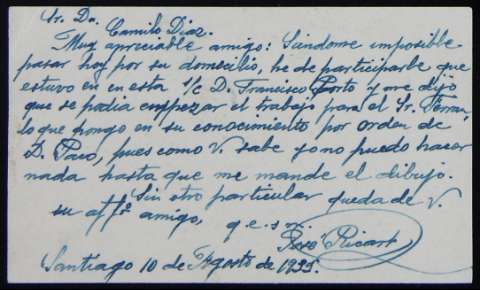 Sr. Dn. Camilo Díaz.
Muy apreciable amigo: Siéndome imposible
pasar hoy por su domicilio, he de participarle que
estuvo en en esta s/c D. Francisco Porto y me dijo
que se podia empezar el trabajo para el Sr.
lo que pongo en su conocimiento por orden de
D. Paco, pues como V. sabe yo no puedo hacer
nada hasta que me mande el dibujo.
Sin otro particular queda de V.
su aff.º amigo,
q. e. s. m.
Ricart
Santiago 10 de Agosto de 1935.